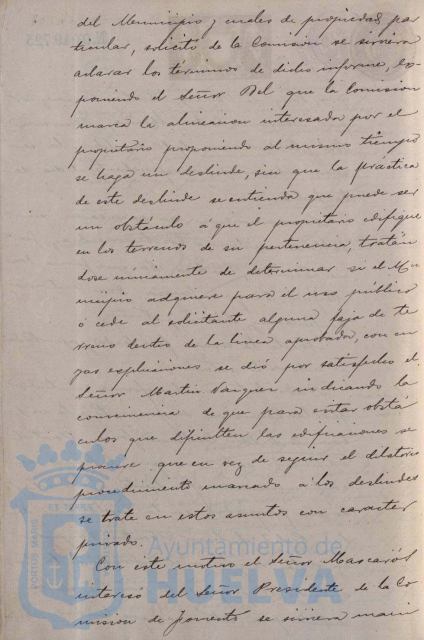 del Municipio y cuales de propiedad par
ticular, solicitó de la Comisión se sirviera
aclarar los términos de dicho informe, ex-
poniendo el Señor Bel que la Comision
marca la alineacion interesada por el
propietario proponiendo al mismo tiempo
se haga un deslinde, sin que la práctica
de este deslinde se entienda que puede ser
un obstáculo á que el propietario edifique
en los terrenos de su pertenencia, tratán
dose únicamente de determinar si el Mu
nicipio adquiere para el uso público
ó cede al solicitante alguna faja de te
rreno dentro de la linea aprobada, con cu
yas esplicaciones se dió por satisfecho el
Señor Martin Vazquez indicando la
conveniencia de que para evitar obstá
culos que dificulten las edificaciones se
procure que en vez de seguir el dilatorio
procedimiento marcado á los deslindes
se trate en estos asuntos con caracter
privado.
Con este motivo el Señor Mascarós
interesó del Señor Presidente de la Co
mision de Fomento se sirviera mani
Ayuntamiento de
HUELVA